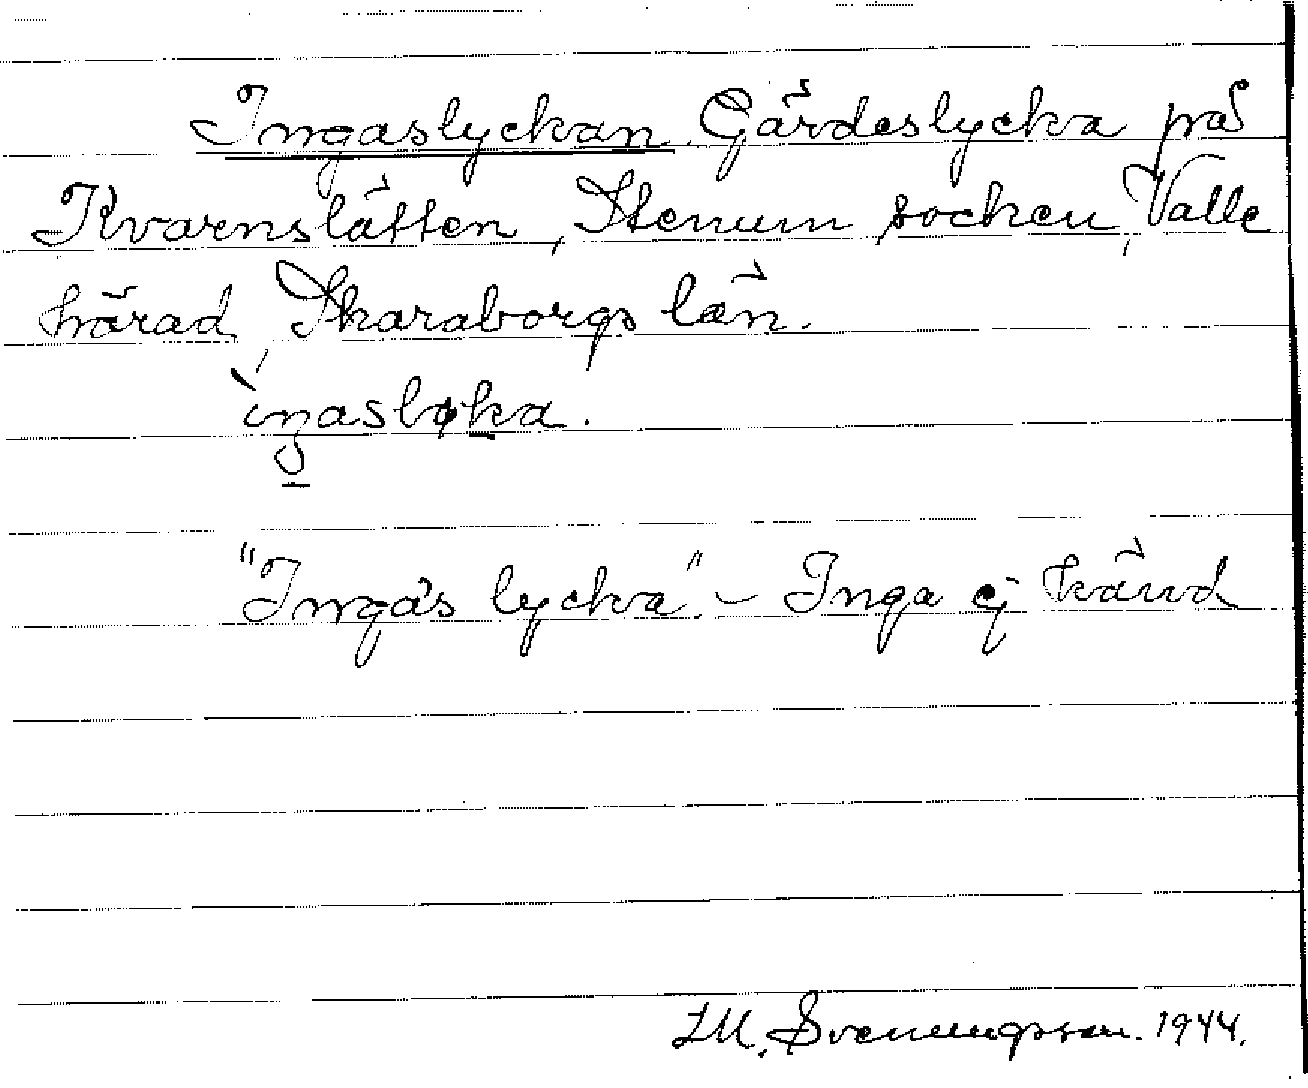 Ingaslyckan. Gärdeslycka på
Kvarnslätten, Stenum socken, Valle
härad, Skaraborgs län.
"Inga's lycka" – Inga ej känd
Svenungsson. 1944.